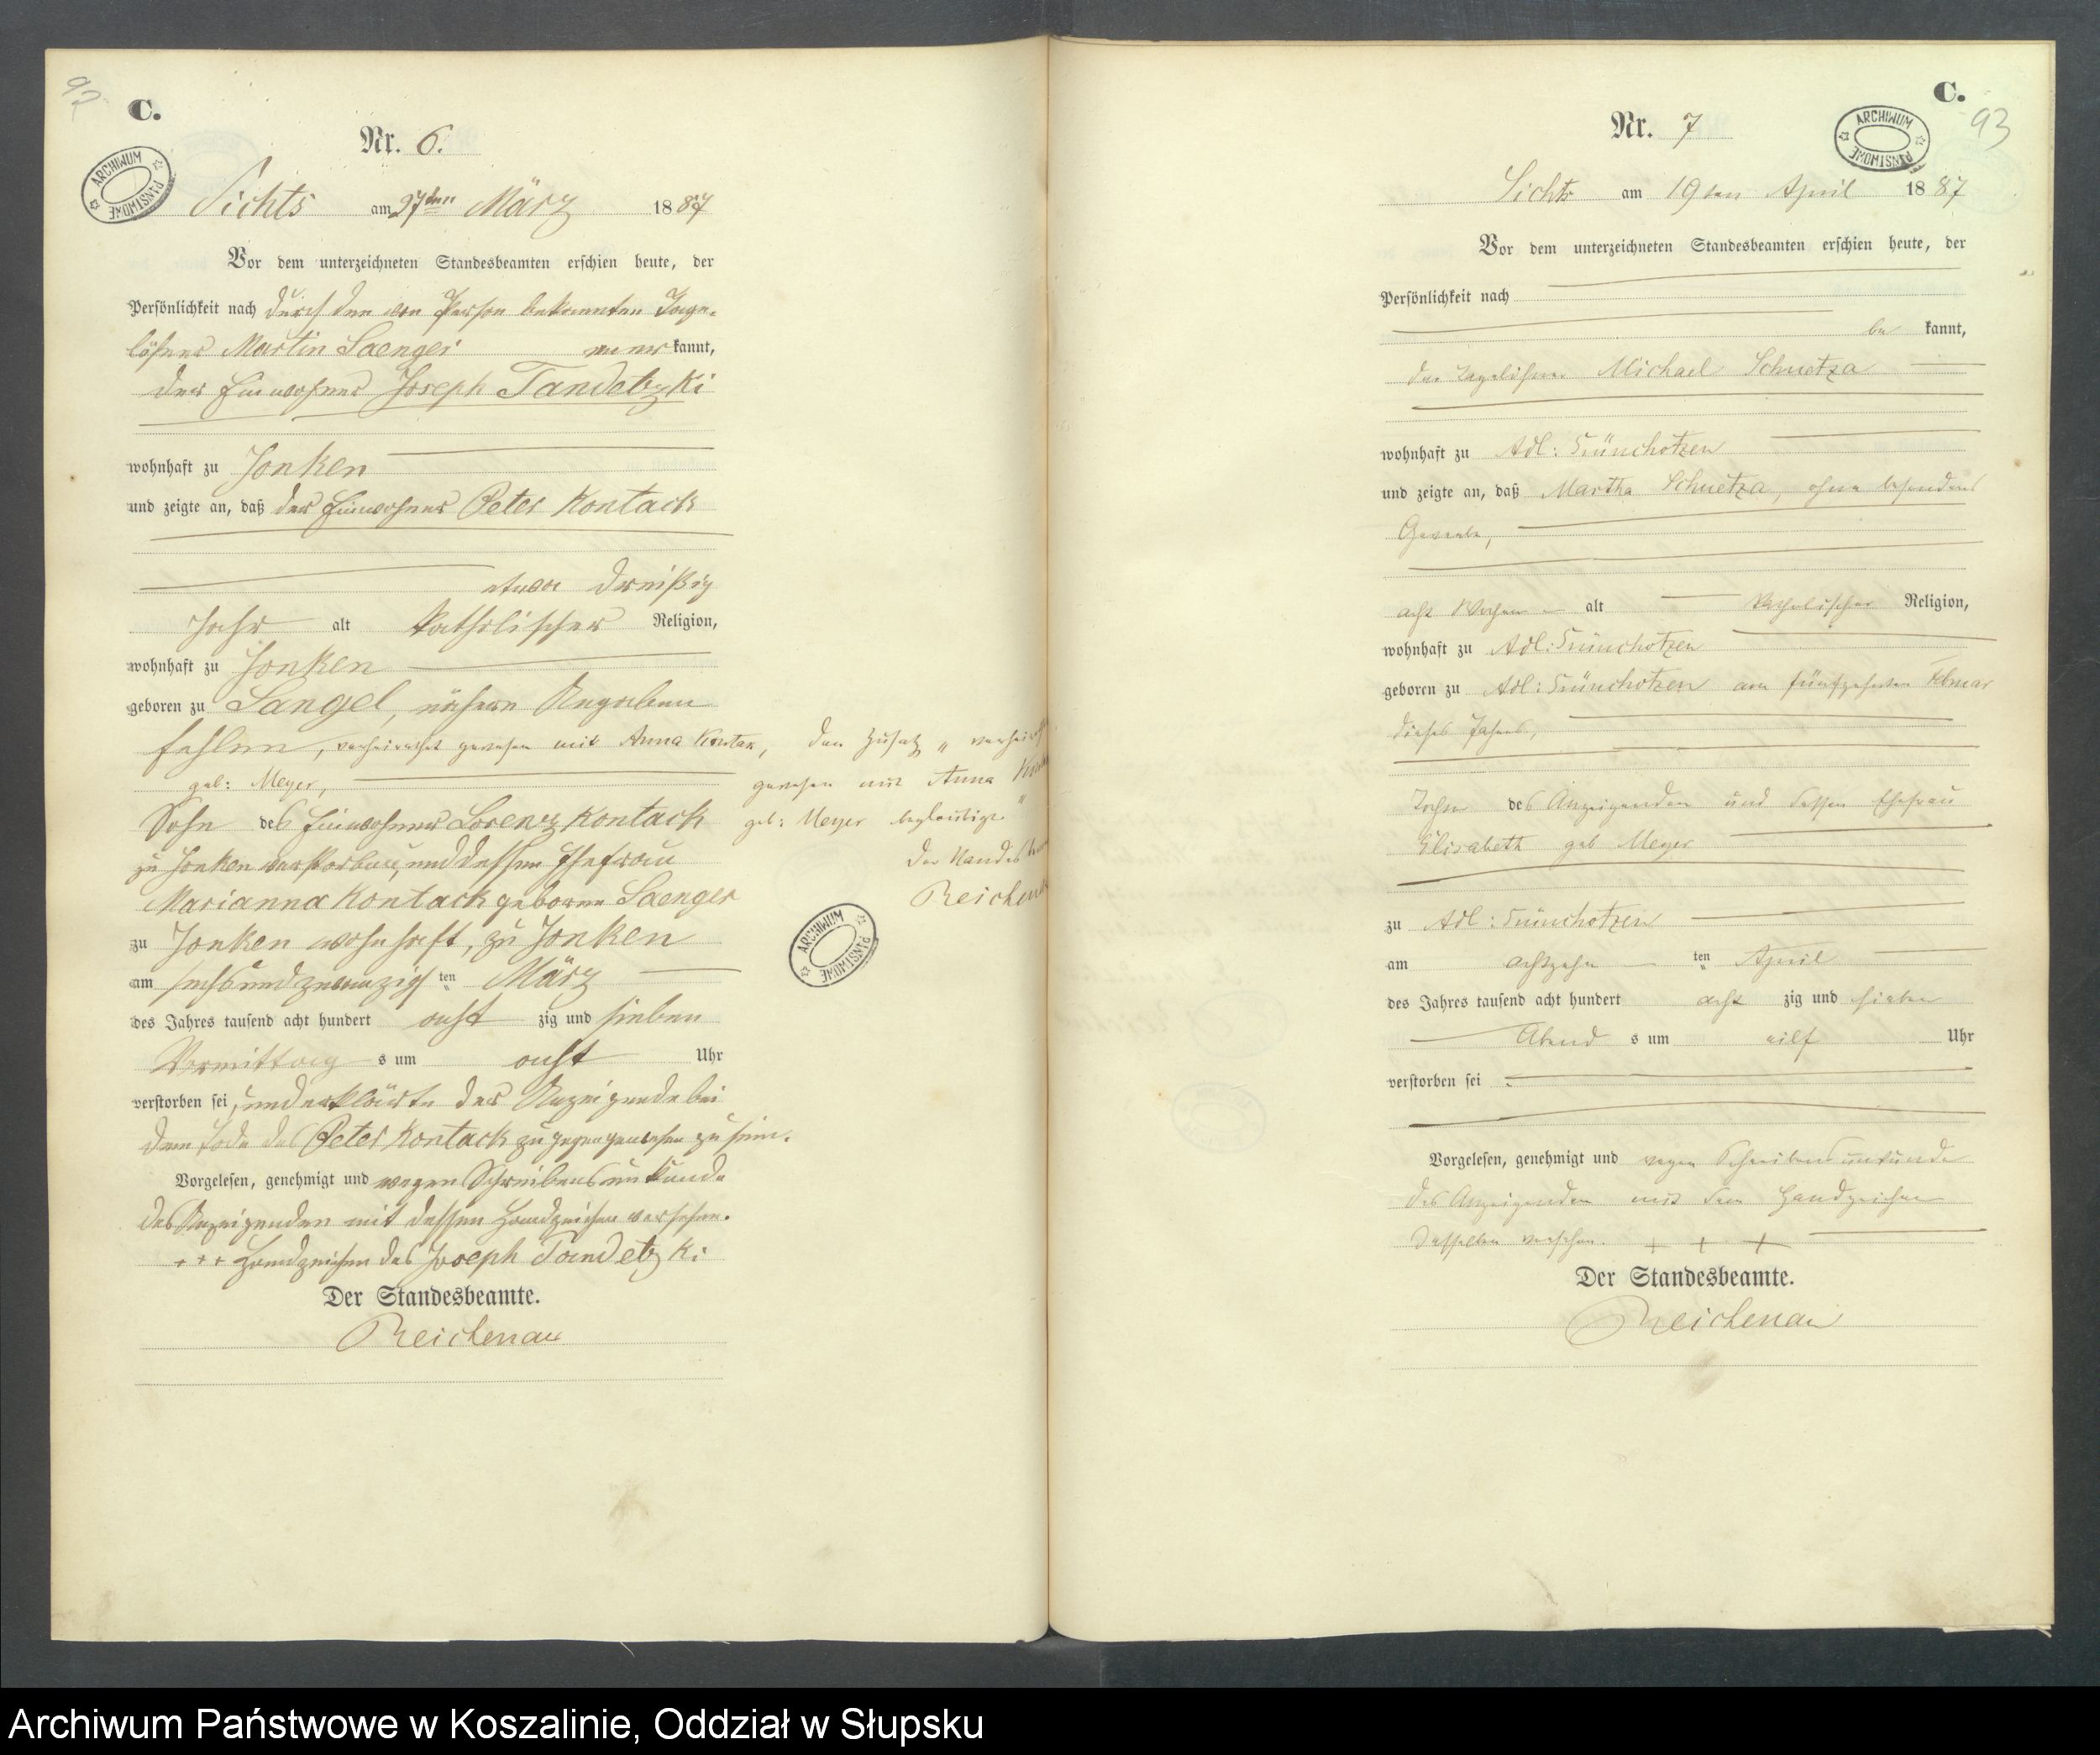 C.
Nr. 6.
ARCHIWUM PAŃSTWOWE
Sichts am 27ten März 1887
Vor dem unterzeichneten Standesbeamten erschien heute, der
Persönlichkeit nach durch den von Person bekannten Tage-
löhner Martin Saenger kannt,
der Einwohner Joseph Tandetzki
wohnhaft zu Jonken
und zeigte an, daß der Einwohner Peter Kontack
etwa dreißig
Jahr alt katholischer Religion,
wohnhaft zu Jonken
geboren zu Sangel, nähere Angaben
fehlen, verheirathet gewesen mit Anna Kontak,
geb: Meyer,
Sohn des Einwohners Lorenz Kontack
zu Jonken verstorben, und dessen Ehefrau
Marianna Kontack geborne Saenger
zu Jonken wohnhaft, zu Jonken
am sechsundzwanzigsten März
des Jahres tausend acht hundert acht zig und sieben
Vormittag s um acht Uhr
verstorben sei, und erklärte der Anzeigende bei
dem Tode des Peter Kontack zugegen gewesen zu sein.
Vorgelesen, genehmigt und wegen Schreibensunkunde
des Anzeigenden mit dessen Handzeichen versehen.
+++ Handzeichen des Joseph Tandetzki
Der Standesbeamte.
Reichenau
Den Zusatz „ verheirathet
gewesen mit Anna
geb: Meyer " beglaubigt
Der
Reichenau
ARCHIWUM PAŃSTWOWE
C.
93
Nr. 7
ARCHIWUM PAŃSTWOWE
Sichts am 19ten April 1887
Vor dem unterzeichneten Standesbeamten erschien heute, der
Persönlichkeit nach
be kannt,
der Tagelöhner Michael Schuetza
wohnhaft zu Adl: Grünchotzen
und zeigte an, daß Martha Schuetza, ohne besonderes
Gewerbe,
acht Wochen alt katholischer Religion,
wohnhaft zu Adl: Grünchotzen
geboren zu Adl: Grünchotzen am fünfzehnten Februar
dieses Jahres,
Tochter des Anzeigenden und dessen Ehefrau
Elisabeth geb Meyer
zu Adl: Grünchotzen
am achtzehn ten April
des Jahres tausend acht hundert acht zig und sieben
Abend s um eilf Uhr
verstorben sei.
Vorgelesen, genehmigt und wegen Schreibensunkunde
des Anzeigenden mit dem Handzeichen
desselben versehen. + + +
Der Standesbeamte.
Reichenau
Archiwum Państwowe w Koszalinie, Oddział w Słupsku